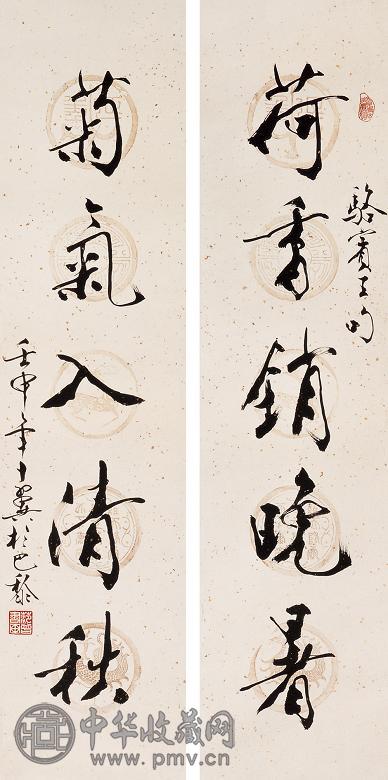 駱賓王句
荷香銷晚暑
菊氣入清秋
壬申年十翼於巴黎
中华收藏网
www.pmv.cn